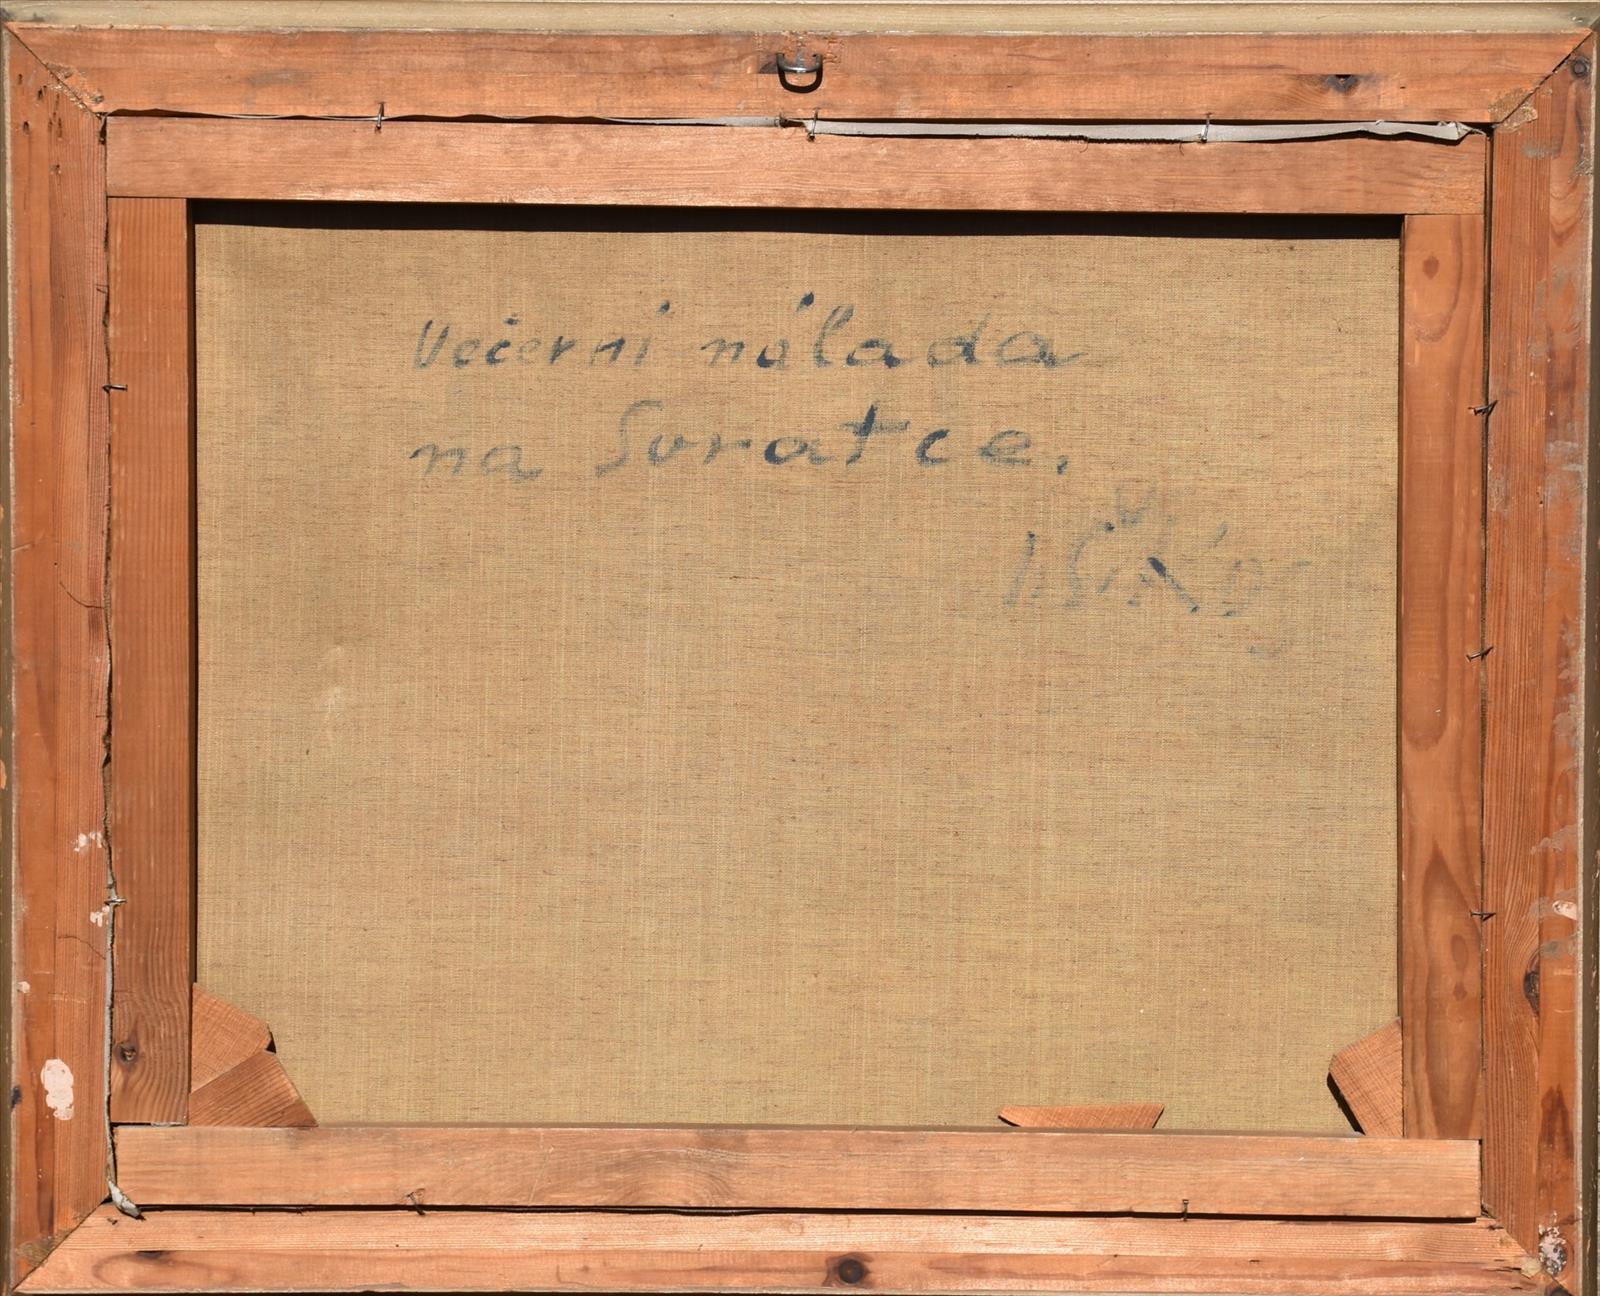 Večerní nálada
na Svratce.